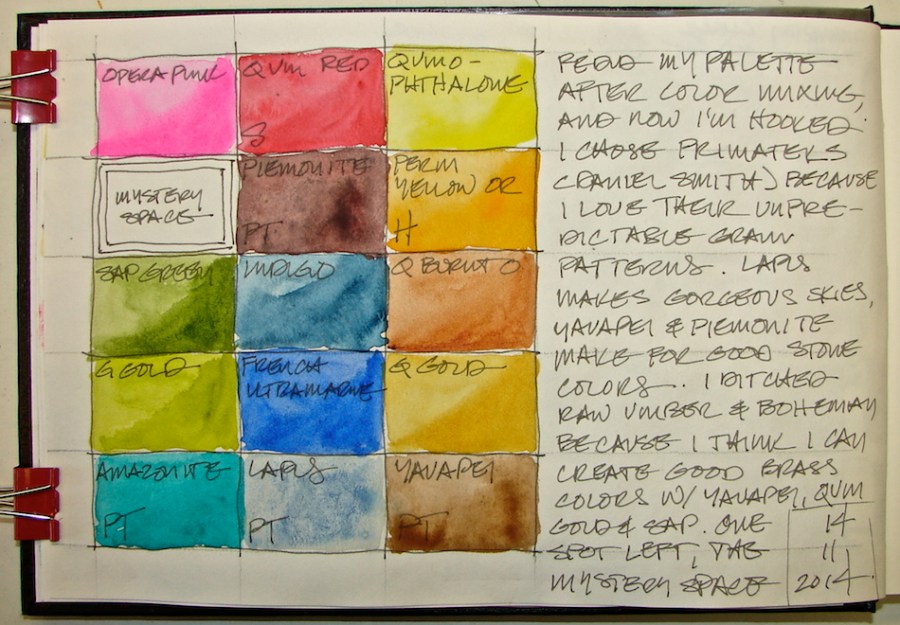 OPERA PINK
QUIN RED
S
QUINO-
PHTHALONE
MYSTERY
SPACE
PIEMONITE
PT
PERM
YELLOW OR
H
SAP GREEN
INDIGO
Q BURNT O
G GOLD
FRENCH
ULTRAMARINE
Q GOLD
AMAZONITE
PT
LAPIS
PT
YAVAPEI
PT
REDID MY PALETTE
AFTER COLOR MIXING,
AND NOW I'M HOOKED.
I CHOSE PRIMATEKS
(DANIEL SMITH) BECAUSE
I LOVE THEIR UNPRE-
DICTABLE GRAIN
PATTERNS. LAPIS
MAKES GORGEOUS SKIES,
YAVAPEI & PIEMONITE
MAKE FOR GOOD STONE
COLORS. I DITCHED
RAW UMBER & BOHEMIAN
BECAUSE I THINK I CAN
CREATE GOOD GRASS
COLORS W/ YAVAPEI, QUIN
GOLD & SAP. ONE
SPOT LEFT, THE
MYSTERY SPACE
14
11
2014